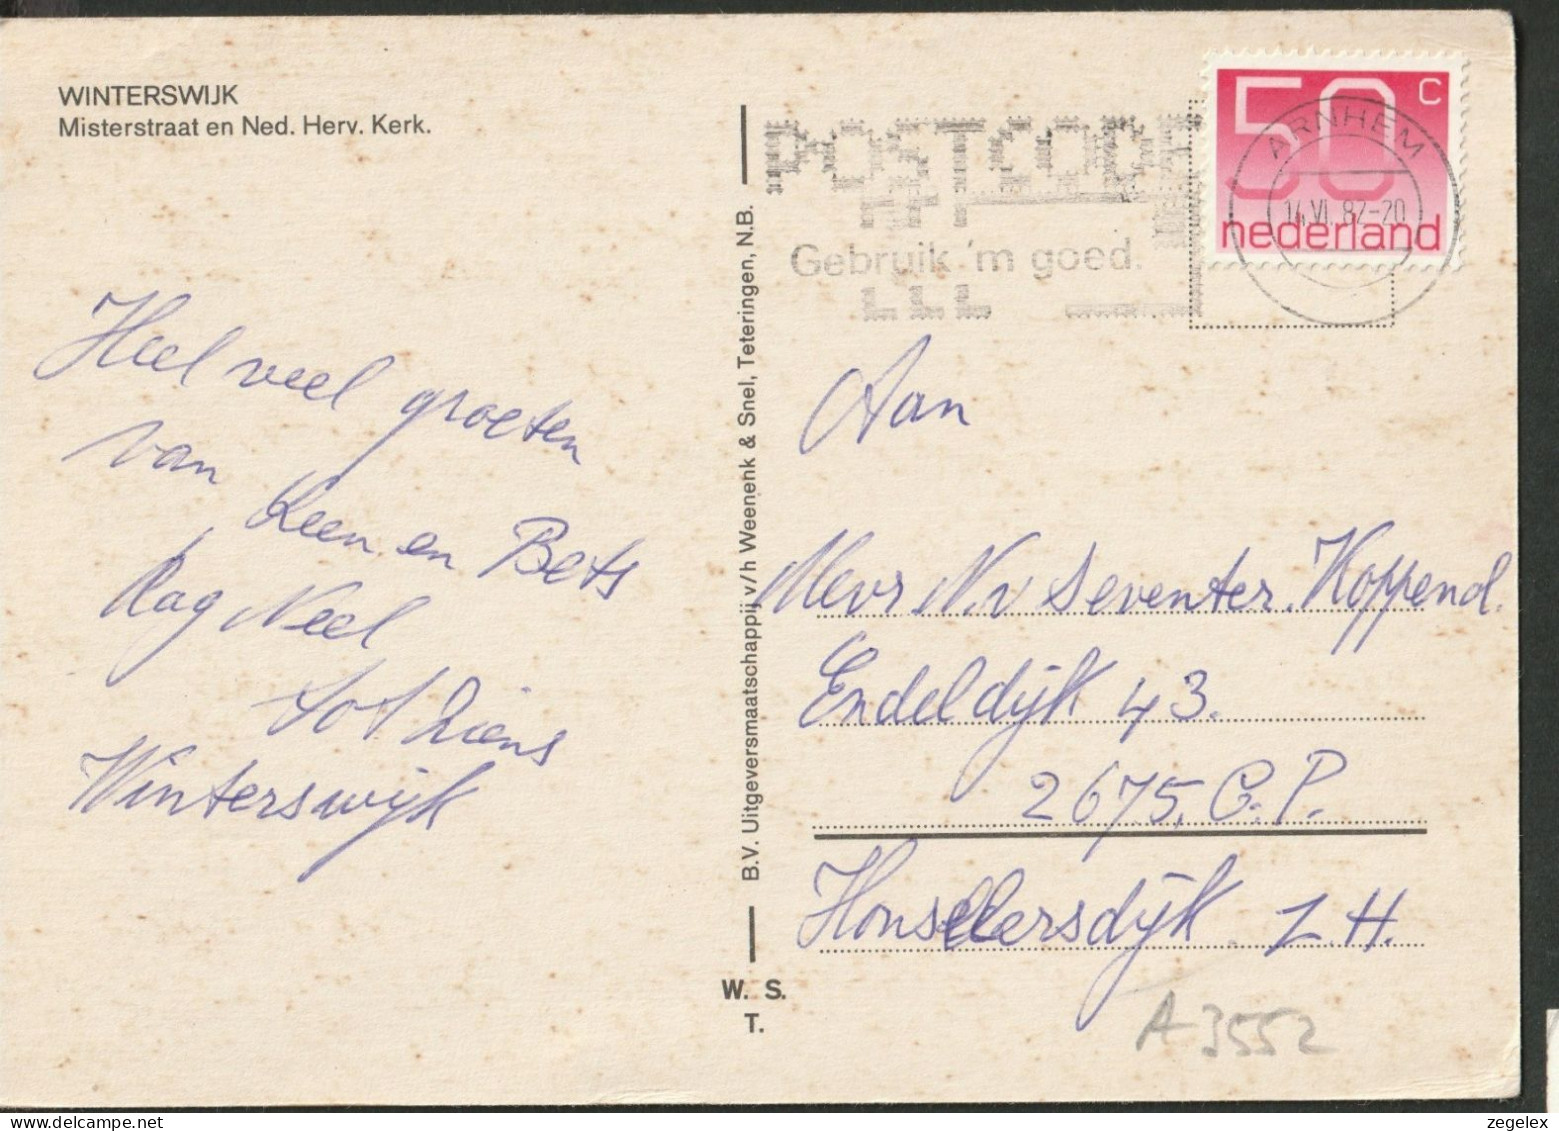 WINTERSWIJK
Misterstraat en Ned. Herv. Kerk.
Heel veel groeten
van Keen en Bets
Dag Neel
tot ziens
Winterswijk
B.V. Uitgeversmaatschappij v/h Weenenk & Snel, Teteringen, N.B.
W. S.
T.
POSTCODE
Gebruik 'm goed.
50 C
nederland
ARNHEM
14.VI.82-20
Aan
Mevr N. v Deventer. Koppend.
Endeldijk 43.
2675. C.P.
Honsellersdijk. Z.H.
A3552
zegelex